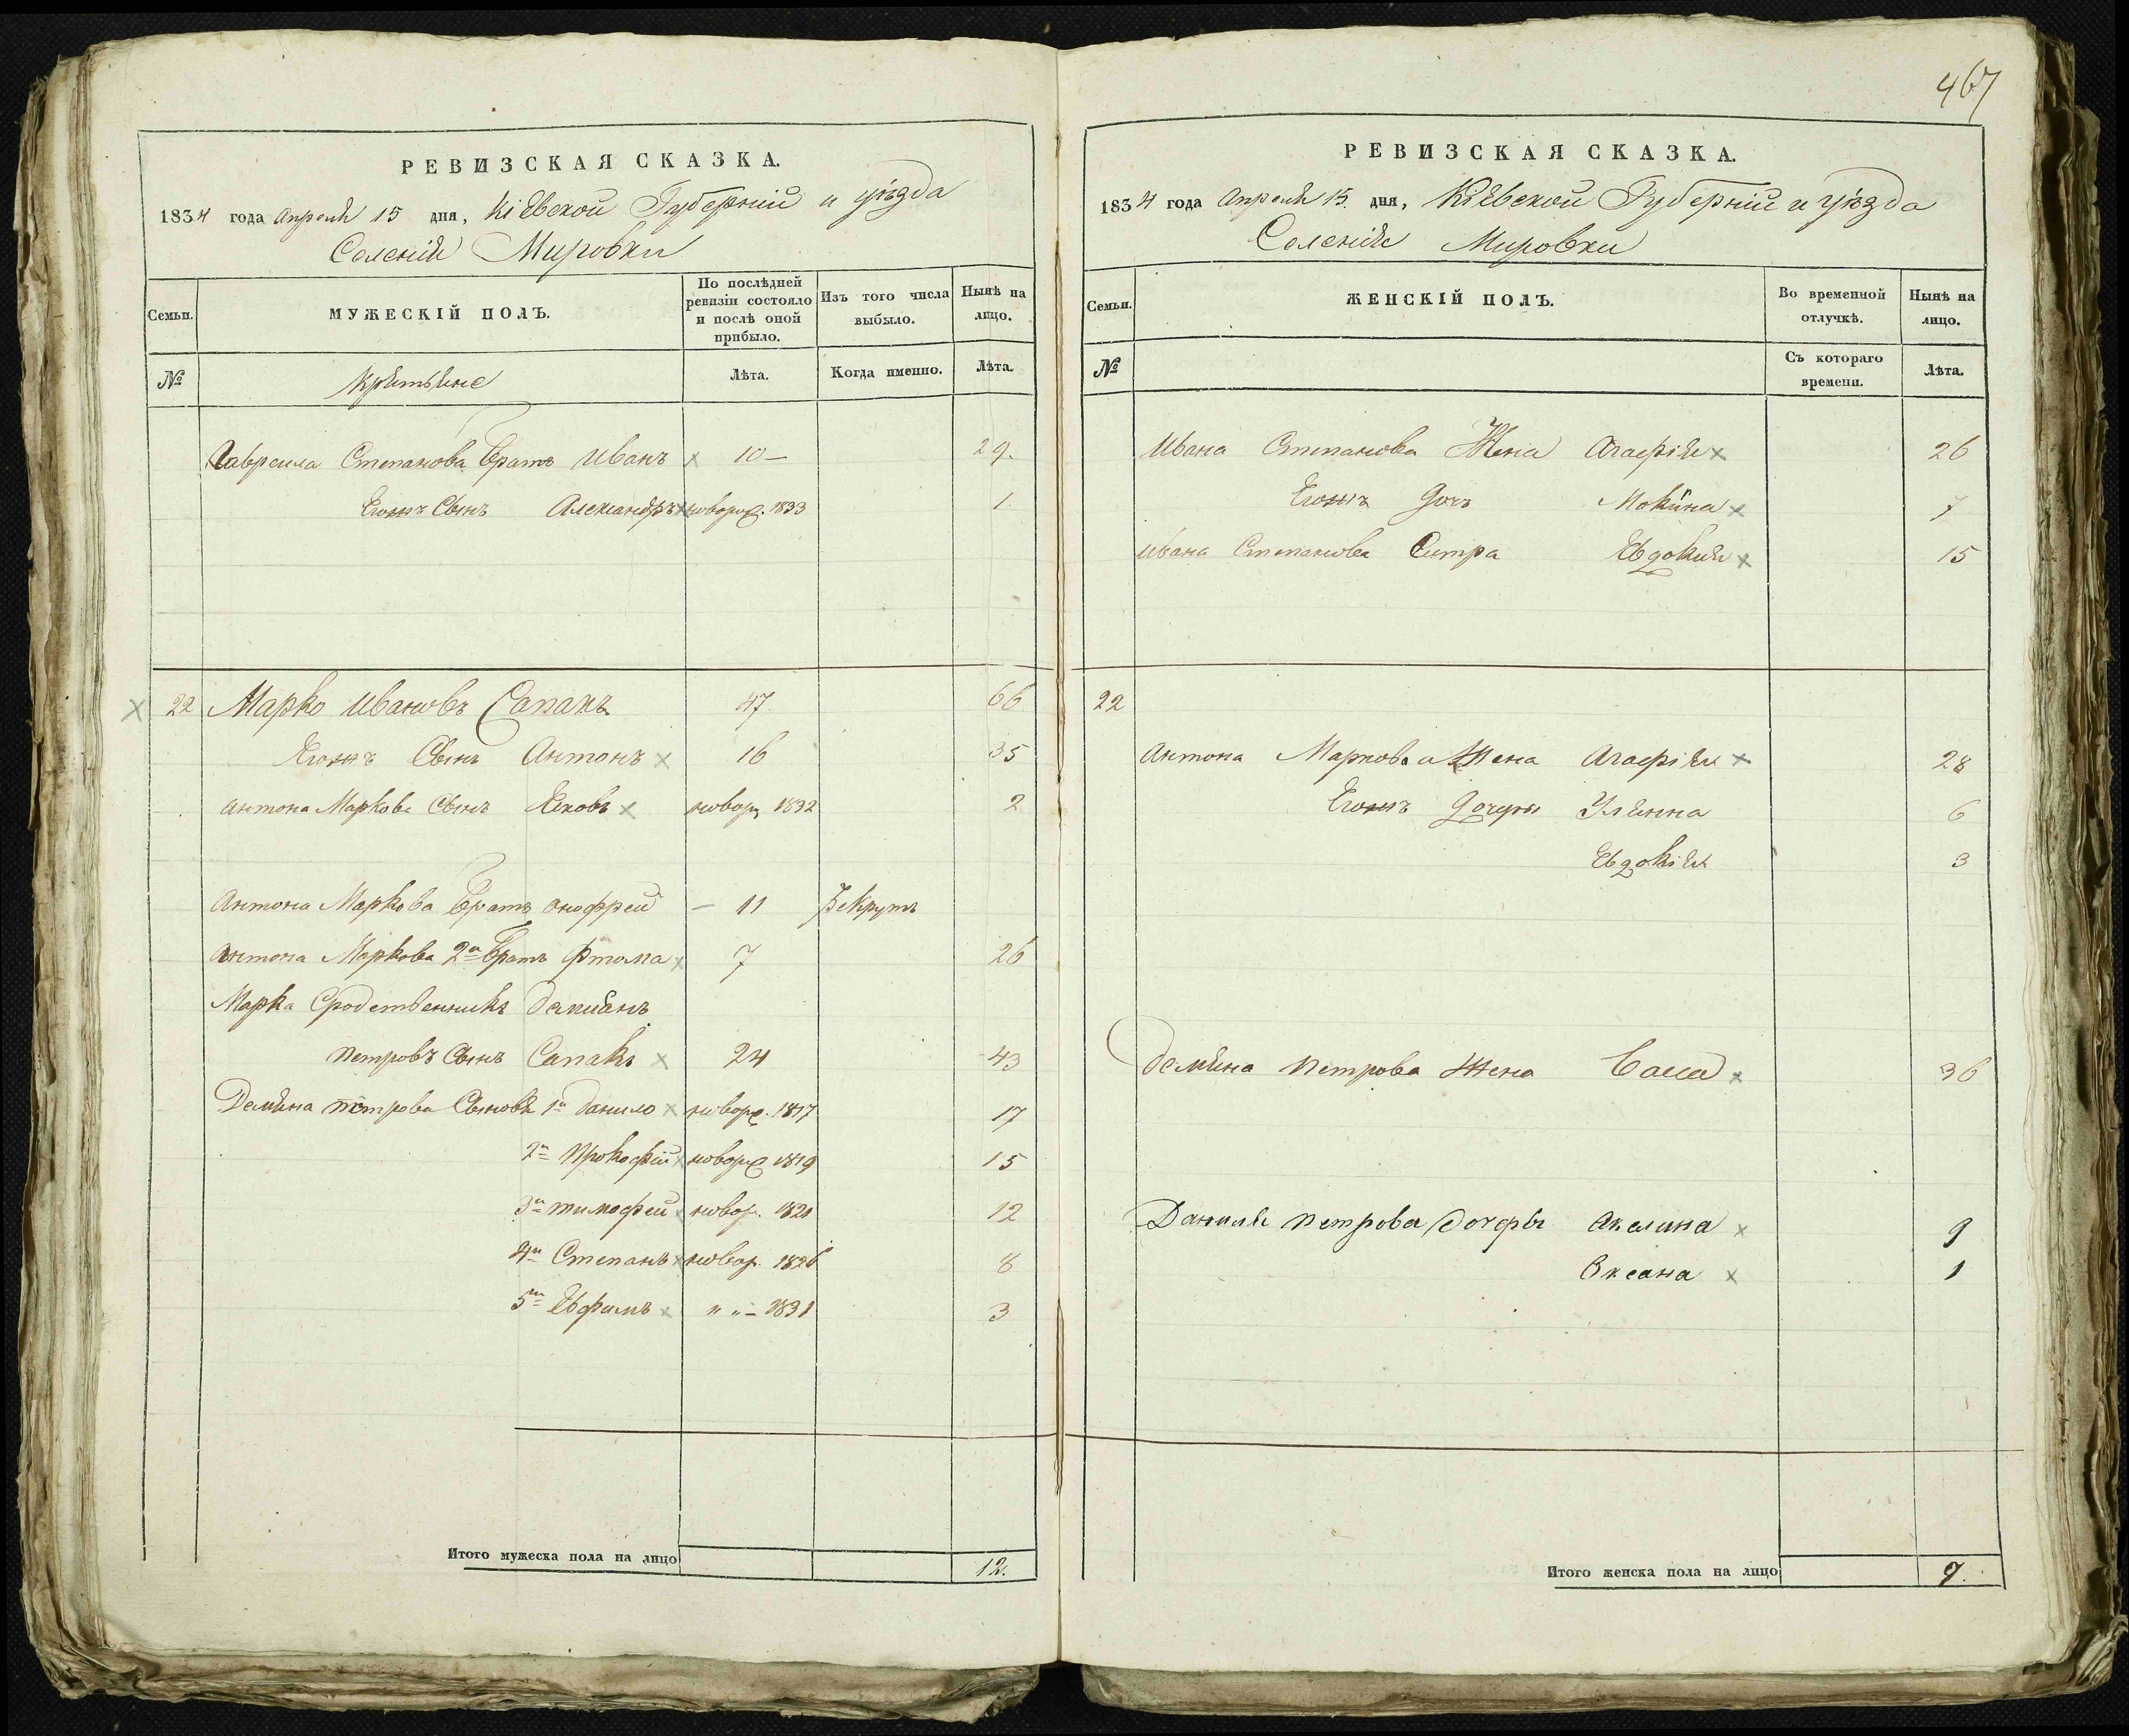 467
РЕВИЗСКАЯ СКАЗКА.
1834 года Апреля 15 дня, Кіевской Губерніи и уѣзда
Селенія Мировки
Семьи.
МУЖЕСКІЙ ПОЛЪ.
По послѣдней ревизіи состояло и послѣ оной прибыло.
Изъ того числа выбыло.
Нынѣ на лицо.
№
Лѣта.
Когда именно.
Лѣта.
Гавриила Степанова братъ Иванъ 10 — 29.
Егожъ Сынъ Александръ новорож. 1833 1
22 Марко Ивановъ Сапакъ 47 66
Егожъ Сынъ Антонъ 16 35
Антона Маркова Сынъ Яковъ новор. 1832 2
Антона Маркова братъ Онофрей — 11 Рекрутъ
Антона Маркова 2й братъ 7 26
Марка Сродственникъ Дамианъ
Петровъ Сынъ Сапакъ 24 43
Демяна Петрова Сыновя 1й Данило новор. 1817 17
2й Прокофій новор. 1819 15
3й Тимофей новор. 1821 12
4й Степанъ новор. 1826 8
5й Ефимъ " " — 1831 3
Итого мужеска пола на лицо 12.
РЕВИЗСКАЯ СКАЗКА.
1834 года Апреля 15. дня, Кіевской Губерніи и уѣзда
Селенія Мировки
Семьи.
ЖЕНСКІЙ ПОЛЪ.
Во временной отлучкѣ.
Нынѣ на лицо.
№
Съ котораго времени.
Лѣта.
Ивана Степанова Жена Агафія 26
Егожъ дочь 7
Ивана Степанова Систра Евдокия 15
22
Антона Маркова Жена Агафія 28
Егожъ дочери Улянна 6
Евдокія 3
Демяна Петрова Жена 36
Данила Петрова дочери Акелина 9
Оксана 1
Итого женска пола на лицо 9.